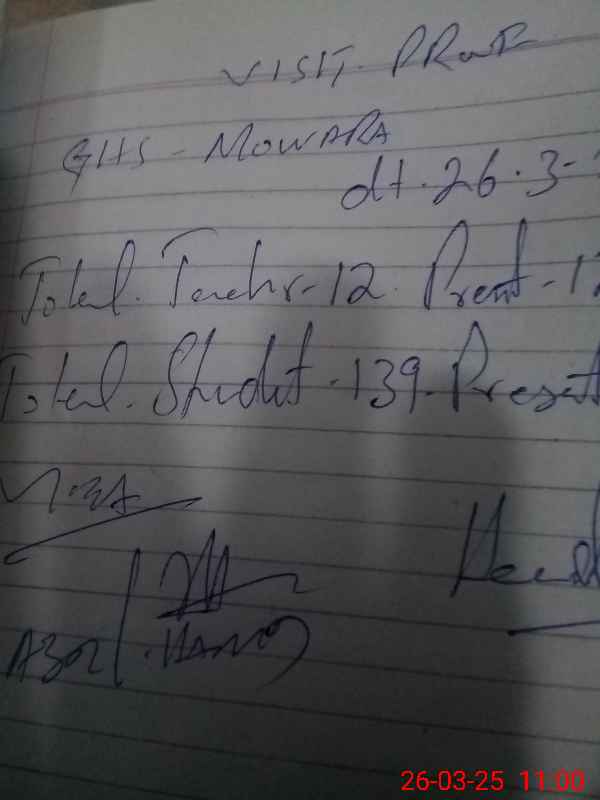 VISIT. PRooF
GHS - MOWARA
dt. 26.3-
Total. Teachr-12. Prent - 12
Total. Studet - 139. Present
Head
26-03-25 11:00